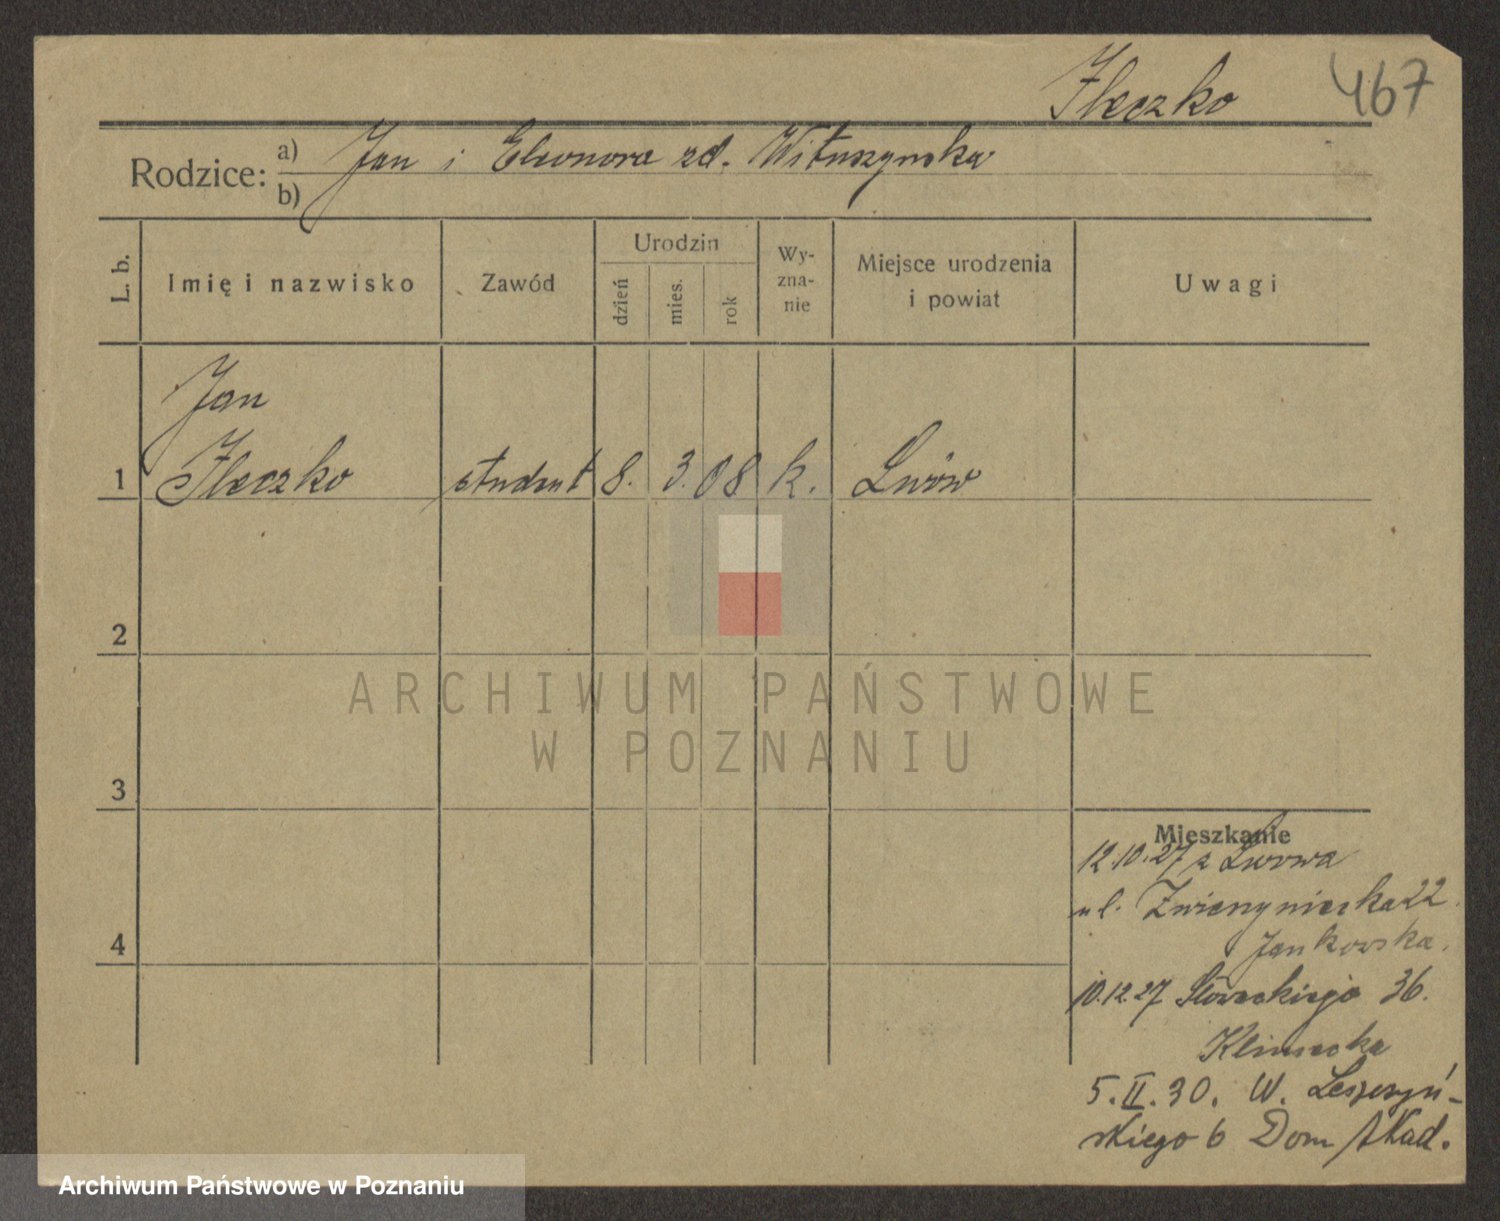 Ileczko 467
Rodzice: a) Jan i Eleonora zd. Wituszynska
b)
L. b.
Imię i nazwisko
Zawód
Urodzin
dzień
mies.
rok
Wy-
zna-
nie
Miejsce urodzenia
i powiat
Uwagi
Jan
1 Ileczko student 8. 3. 08 k. Lwów
2
3
4
ARCHIWUM PAŃSTWOWE
W POZNANIU
Mieszkanie
12.10.27 z Lwowa
ul. Zwierzyniecka 22.
Jankowska.
10.12.27 Słowackiego 36.
Klimecka
5.II.30. W. Leszczyń-
skiego 6 Dom Akad.
Archiwum Państwowe w Poznaniu